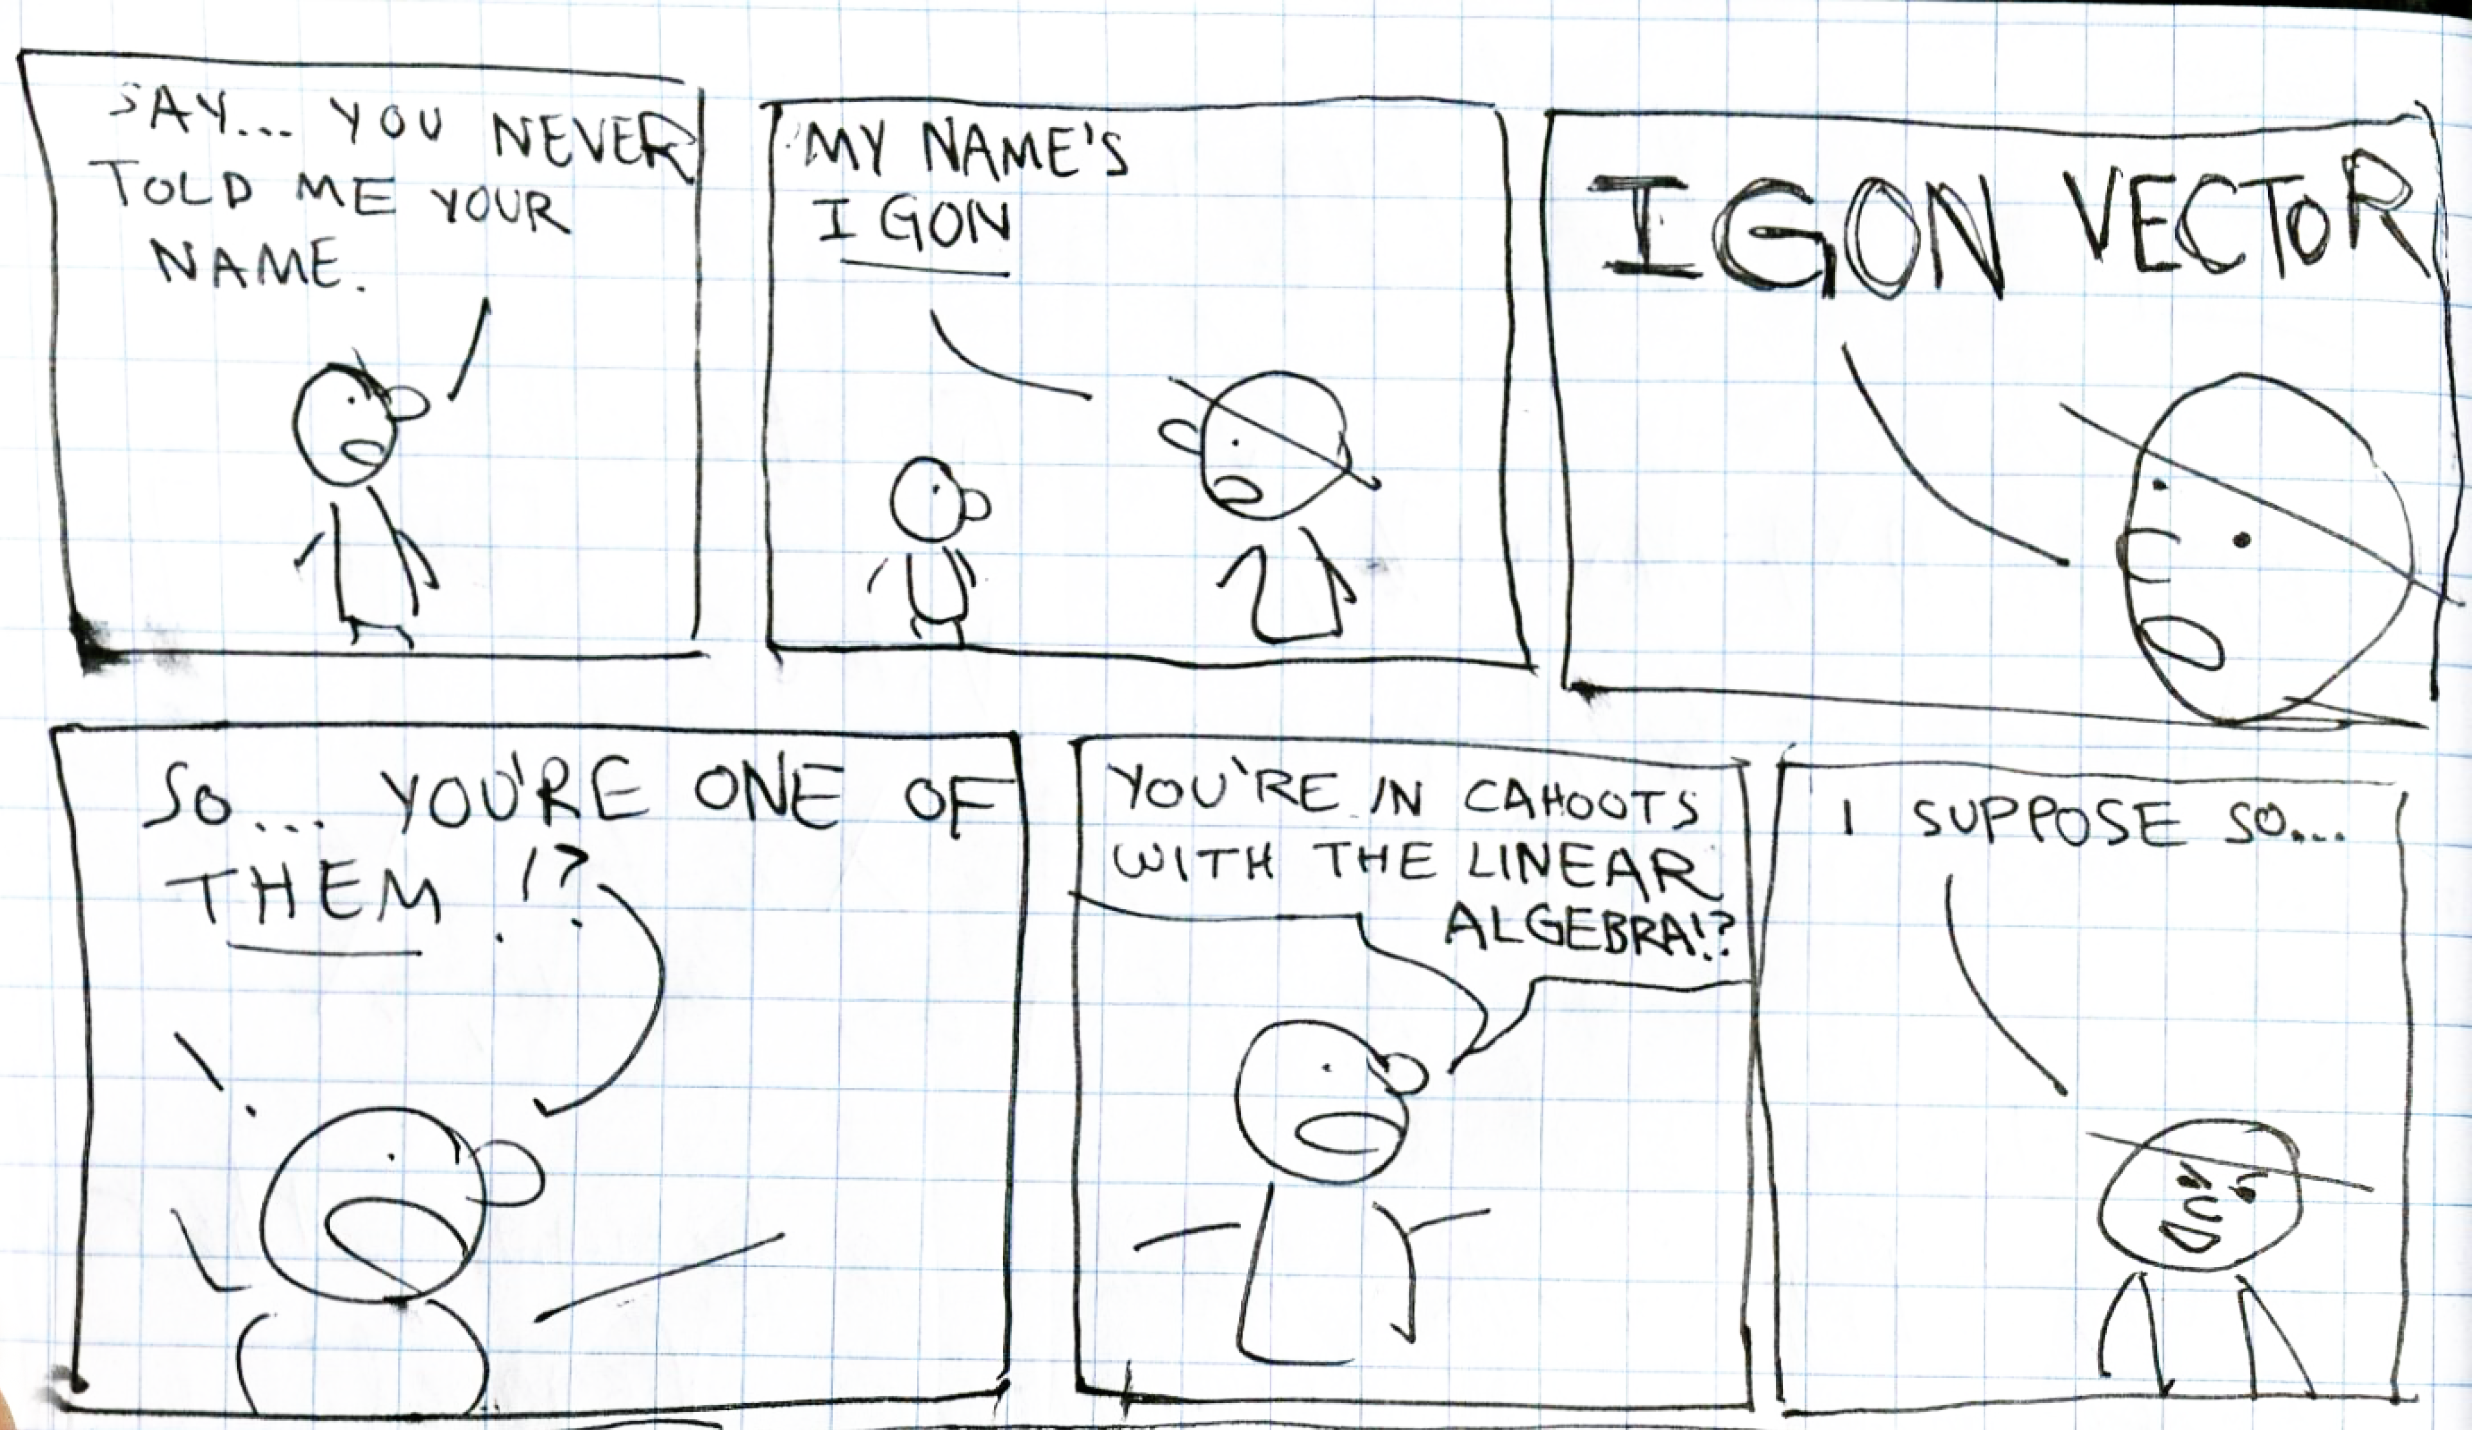 SAY... YOU NEVER
TOLD ME YOUR
NAME.
MY NAME'S
I GON
I GON VECTOR
SO... YOU'RE ONE OF
THEM!?
YOU'RE IN CAHOOTS
WITH THE LINEAR
ALGEBRA!?
I SUPPOSE SO...